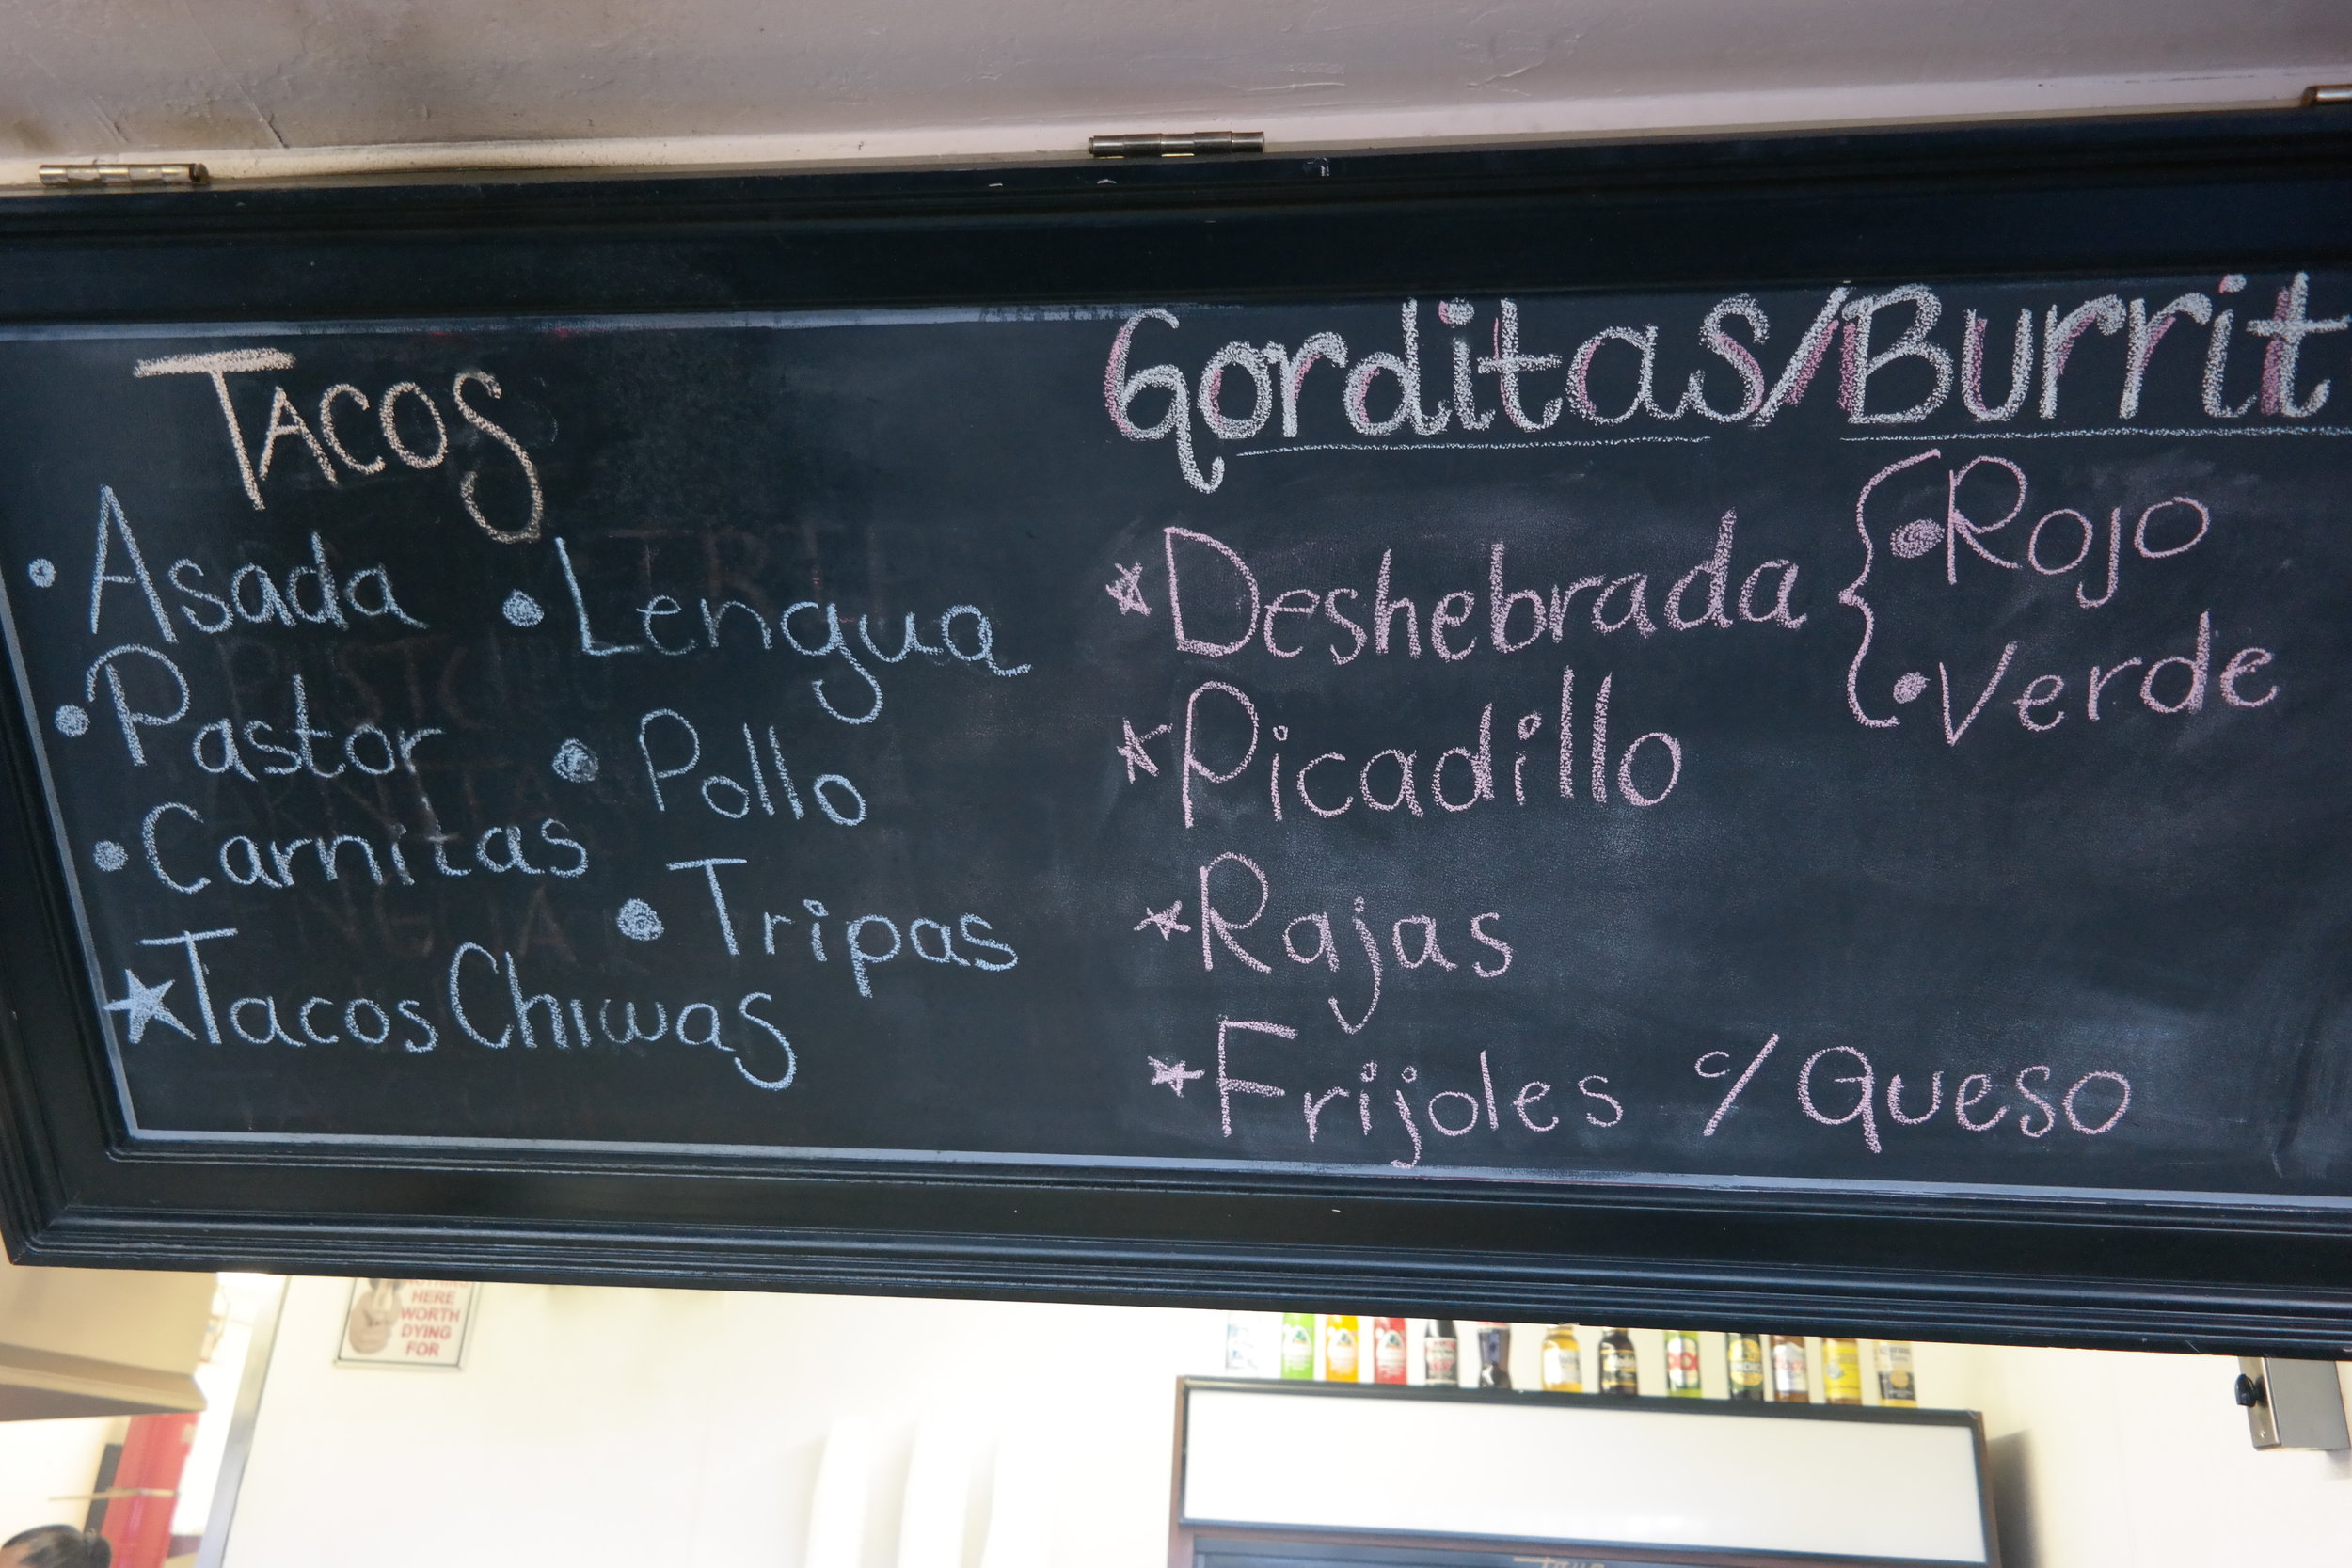 TACOS
Asada
Pastor
Carnitas
Tacos Chiwas
Lengua
Pollo
Tripas
Gorditas/Burrit
Deshebrada
Rojo
Verde
Picadillo
Rajas
Frijoles c/ Queso
HERE
WORTH
DYING
FOR